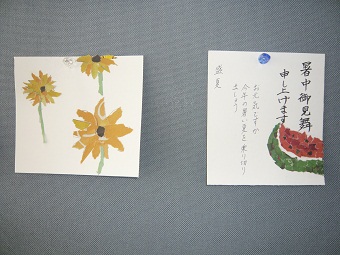 暑中御見舞
申し上げます
お元気ですか
今年の暑い夏を乗り切り
ましょう
盛夏